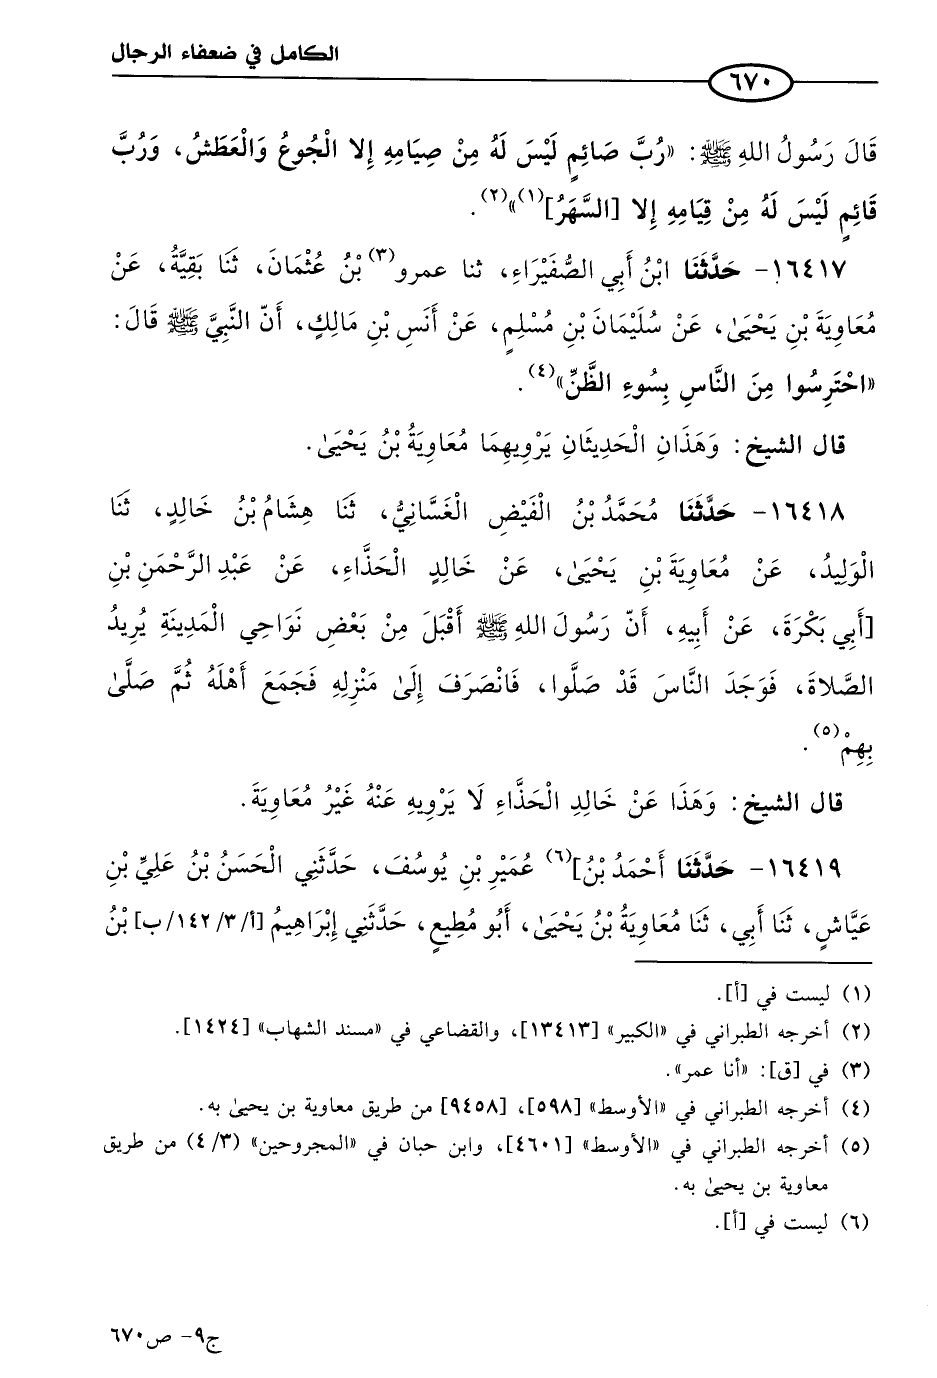 الكامل في ضعفاء الرجال
٦٧٠
قَالَ رَسُولُ اللهِ ﷺ: «رُبَّ صَائِمٍ لَيْسَ لَهُ مِنْ صِيَامِهِ إِلا الْجُوعُ وَالْعَطَشُ، وَرُبَّ
قَائِمٍ لَيْسَ لَهُ مِنْ قِيَامِهِ إِلا [السَّهَرُ](١)»(٢).
١٦٤١٧- حَدَّثَنَا ابْنُ أَبِي الصُّفَيْرَاءِ، ثنا عمرو(٣) بْنُ عُثْمَانَ، ثَنَا بَقِيَّةُ، عَنْ
مُعَاوِيَةَ بْنِ يَحْيَىٰ، عَنْ سُلَيْمَانَ بْنِ مُسْلِمٍ، عَنْ أَنَسِ بْنِ مَالِكٍ، أَنّ النَّبِيَّ ﷺ قَالَ:
«احْتَرِسُوا مِنَ النَّاسِ بِسُوءِ الظَّنِّ»(٤).
قال الشيخ: وَهَذَانِ الْحَدِيثَانِ يَرْوِيهِمَا مُعَاوِيَةُ بْنُ يَحْيَىٰ.
١٦٤١٨- حَدَّثَنَا مُحَمَّدُ بْنُ الْفَيْضِ الْغَسَّانِيُّ، ثَنَا هِشَامُ بْنُ خَالِدٍ، ثَنَا
الْوَلِيدُ، عَنْ مُعَاوِيَةَ بْنِ يَحْيَىٰ، عَنْ خَالِدٍ الْحَذَّاءِ، عَنْ عَبْدِ الرَّحْمَنِ بْنِ
[أَبِي بَكْرَةَ، عَنْ أَبِيهِ، أَنّ رَسُولَ اللهِ ﷺ أَقْبَلَ مِنْ بَعْضِ نَوَاحِي الْمَدِينَةِ يُرِيدُ
الصَّلاةَ، فَوَجَدَ النَّاسَ قَدْ صَلَّوا، فَانْصَرَفَ إِلَىٰ مَنْزِلِهِ فَجَمَعَ أَهْلَهُ ثُمَّ صَلَّىٰ
بِهِمْ(٥).
قال الشيخ: وَهَذَا عَنْ خَالِدِ الْحَذَّاءِ لَا يَرْوِيهِ عَنْهُ غَيْرُ مُعَاوِيَةَ.
١٦٤١٩- حَدَّثَنَا أَحْمَدُ بْنُ](٦) عُمَيْرِ بْنِ يُوسُفَ، حَدَّثَنِي الْحَسَنُ بْنُ عَلِيِّ بْنِ
عَيَّاشٍ، ثَنَا أَبِي، ثَنَا مُعَاوِيَةُ بْنُ يَحْيَىٰ، أَبُو مُطِيعٍ، حَدَّثَنِي إِبْرَاهِيمُ [أ/١٤٢/٣/ب] بْنُ
(١) ليست في [أ].
(٢) أخرجه الطبراني في «الكبير» [١٣٤١٣]، والقضاعي في «مسند الشهاب» [١٤٢٤].
(٣) في [ق]: «أنا عمر».
(٤) أخرجه الطبراني في «الأوسط» [٥٩٨]، [٩٤٥٨] من طريق معاوية بن يحيىٰ به.
(٥) أخرجه الطبراني في «الأوسط» [٤٦٠١]، وابن حبان في «المجروحين» (٤/٣) من طريق
معاوية بن يحيىٰ به.
(٦) ليست في [أ].
ج٩- ص٦٧٠